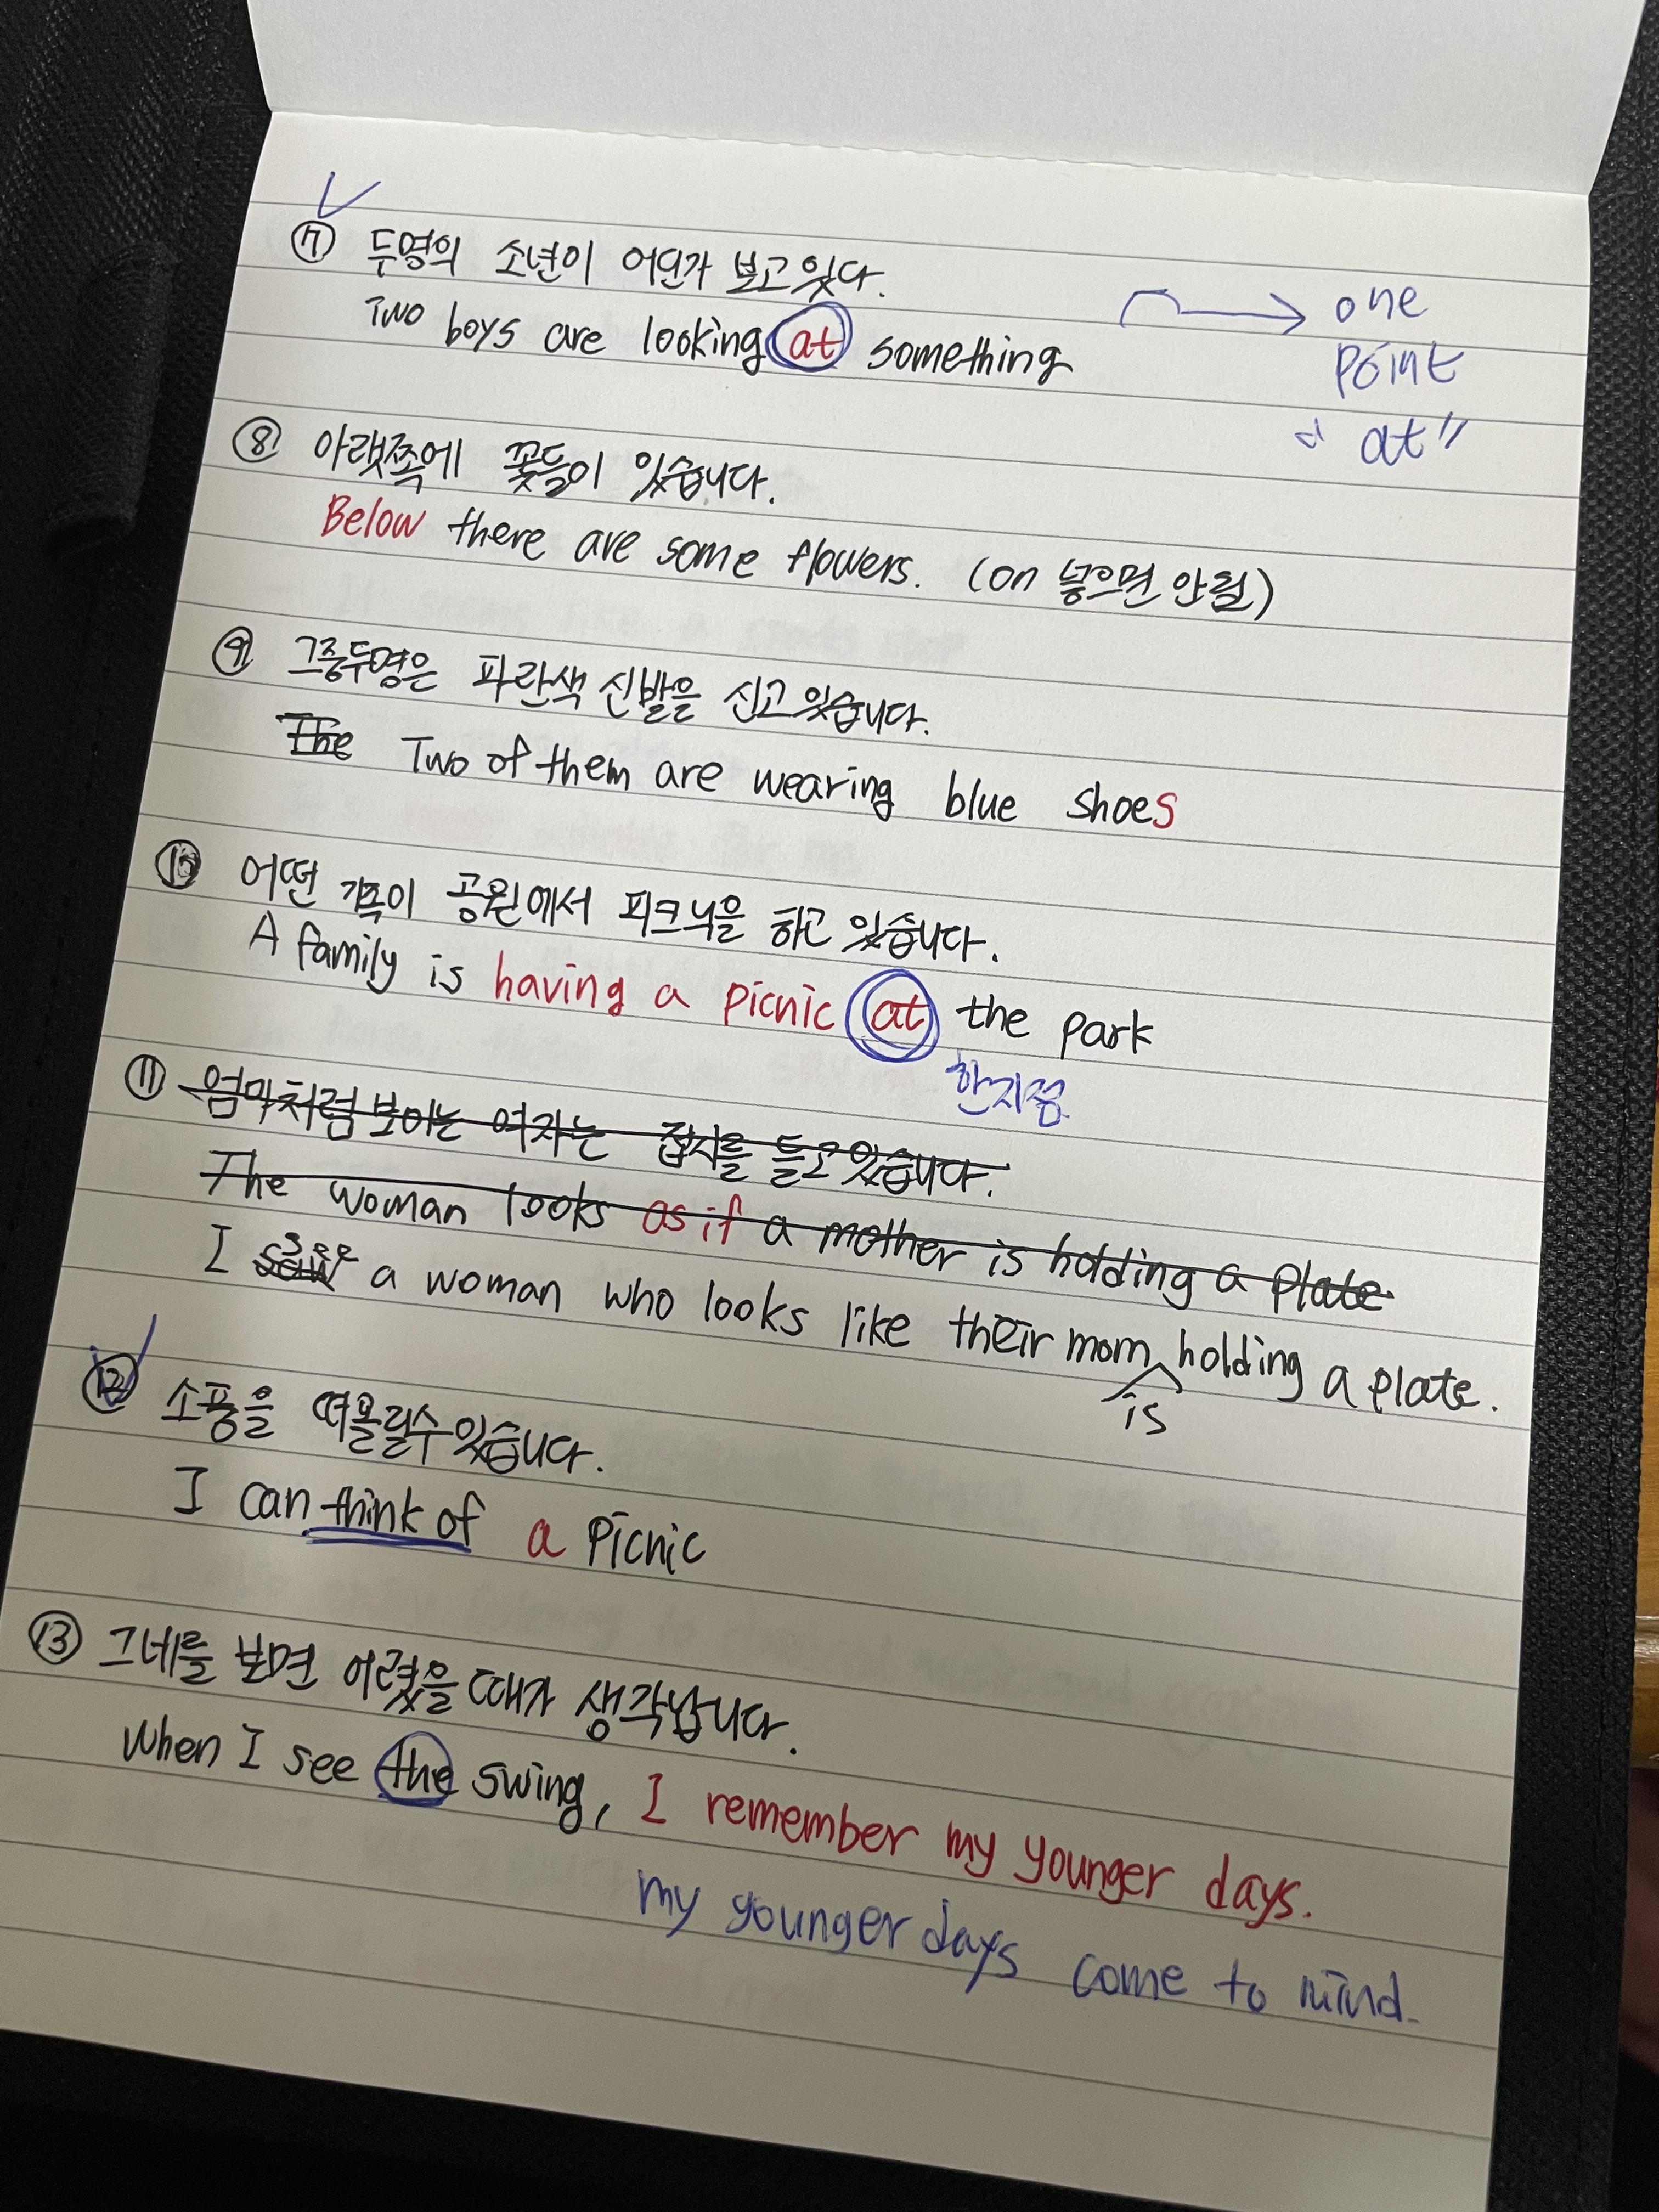 ⑦ 두명의 소년이 어딘가 보고있다.
Two boys are looking at something
one
point
"at"
⑧ 아랫쪽에 꽃들이 있습니다.
Below there are some flowers. (on 넣으면 안됨)
⑨ 그중두명은 파란색 신발을 신고있습니다.
The Two of them are wearing blue shoes
⑩ 어떤 가족이 공원에서 피크닉을 하고 있습니다.
A family is having a picnic at the park
한지점
⑪ 엄마처럼 보이는 여자는 접시를 들고있습니다.
The woman looks as if a mother is holding a plate
see
I saw a woman who looks like their mom holding a plate.
is
⑫ 소풍을 떠올릴수있습니다.
I can think of a picnic
⑬ 그네를 보면 어렸을때가 생각납니다.
When I see the swing, I remember my younger days.
my younger days come to mind.